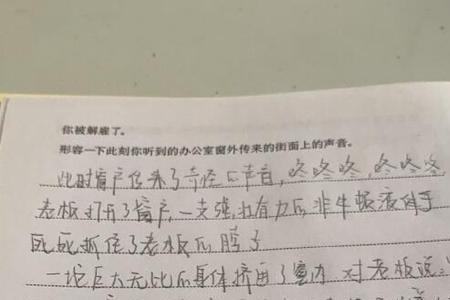 你被解雇了。
形容一下此刻你听到的办公室窗外传来的街面上的声音。
此时窗户传来了奇怪的声音，咚咚咚，咚咚咚
老板打开了窗户，一支强壮有力的非牛顿液体手
死死抓住了老板的脖子
一坨巨大无比的身体挤进了室内 对老板说：